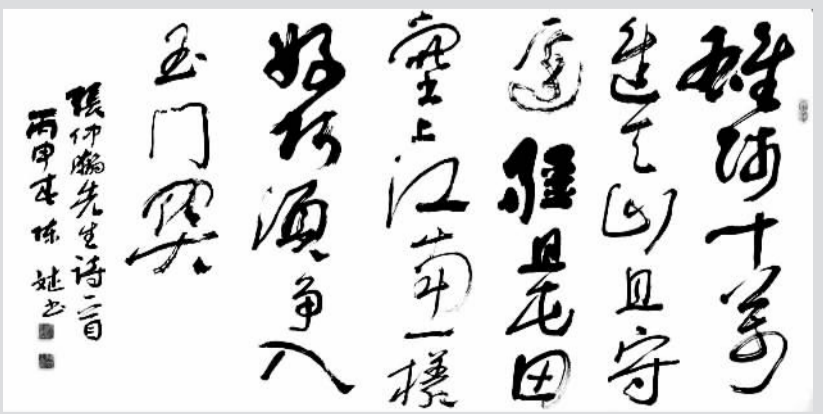 雄师十萬
進天山且守
邊疆且屯田
塞上江南一樣
好何須争入
玉门関
張仲瀚先生诗一首
丙申春陈书